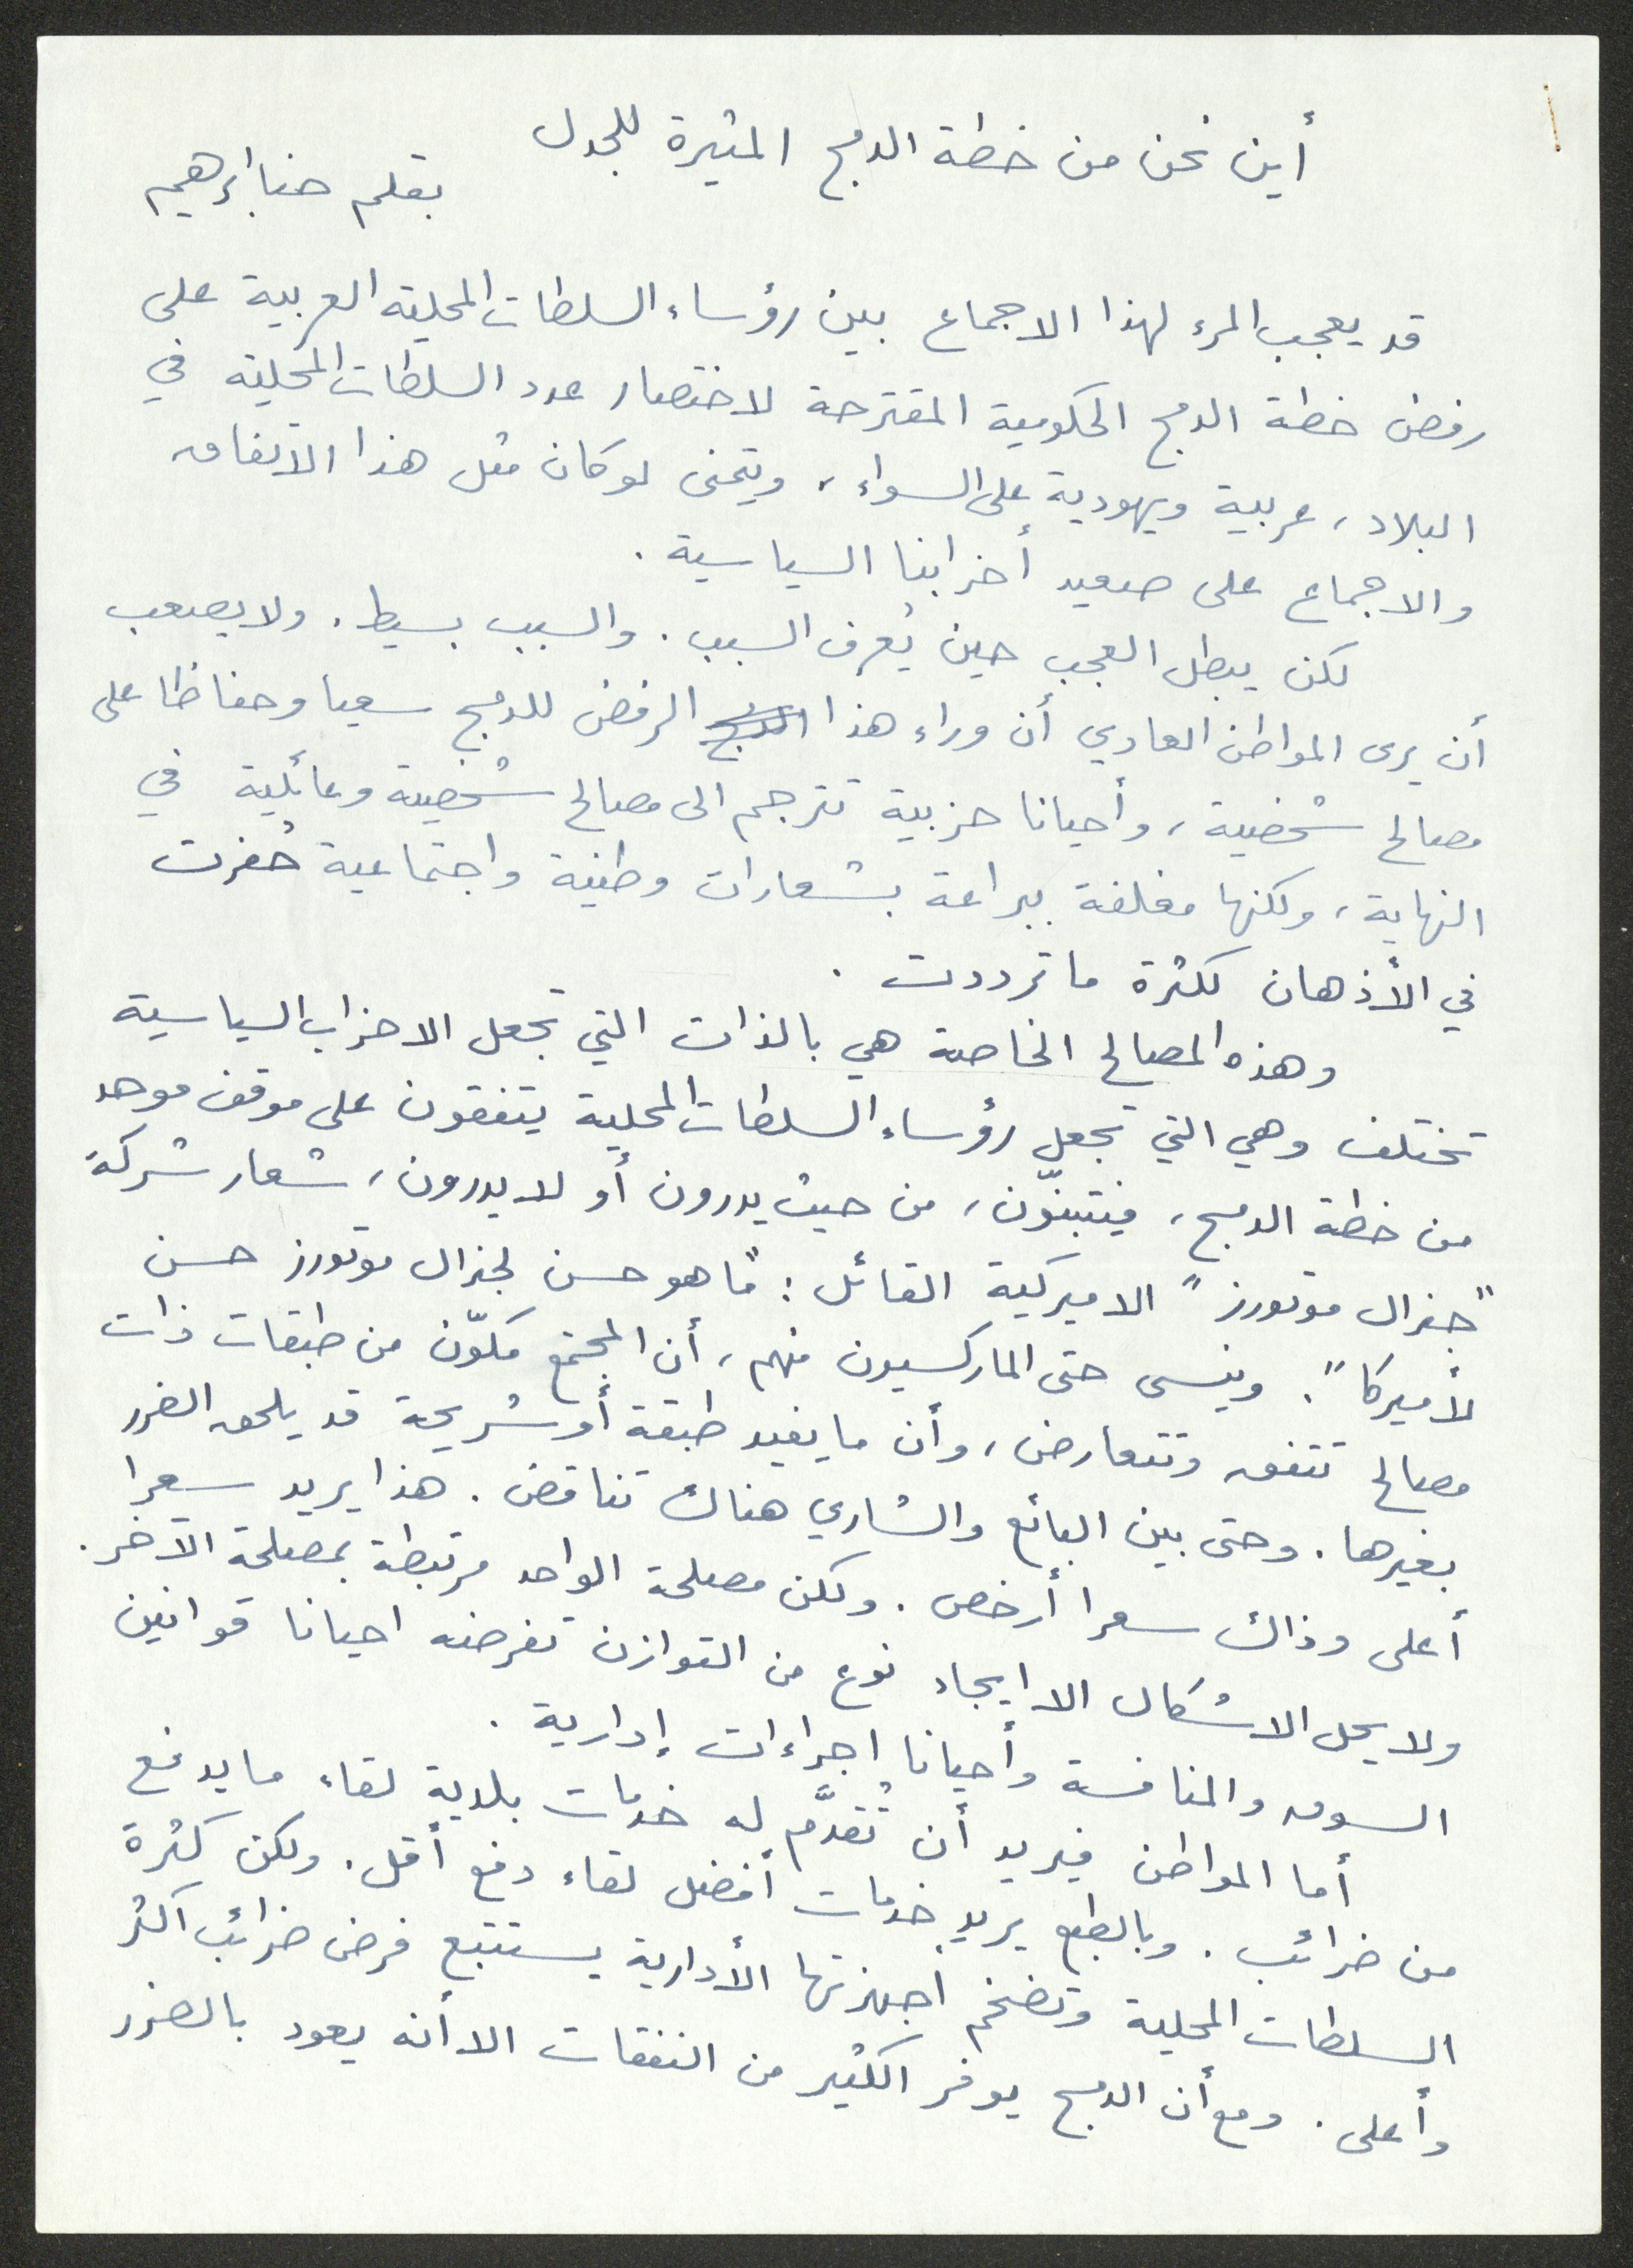 أين نحن من خطة الدمج المثيرة للجدل
بقلم حنا ابرهيم
قد يعجب المرء لهذا الاجماع بين رؤساء السلطات المحلية العربية على
رفض خطة الدمج الحكومية المقترحة لاختصار عدد السلطات المحلية في
البلاد، عربية ويهودية على السواء، ويتمنى لو كان مثل هذا الاتفاق
والاجماع على صعيد أحزابنا السياسية.
لكن يبطل العجب حين يُعرف السبب. والسبب بسيط. ولا يصعب
أن يرى المواطن العادي أن وراء هذا الرفض للدمج سعيا وحفاظا على
مصالح شخصية، وأحيانا حزبية تترجم الى مصالح شخصية وعائلية في
النهاية، ولكنها مغلفة ببراعة بشعارات وطنية واجتماعية حُفرت
في الأذهان لكثرة ما ترددت.
وهذه المصالح الخاصة هي بالذات التي تجعل الاحزاب السياسية
تختلف وهي التي تجعل رؤساء السلطات المحلية يتفقون على موقف موحد
من خطة الدمج، فيتبنّون، من حيث يدرون أو لا يدرون، شعار شركة
"جنرال موتورز" الاميركية القائل: "ما هو حسن لجنرال موتورز حسن
لأميركا". وينسى حتى الماركسيون منهم، أن المجتمع مكوّن من طبقات ذات
مصالح تتفق وتتعارض، وأن ما يفيد طبقة أو شريحة قد يلحق الضرر
بغيرها. وحتى بين البائع والشاري هناك تناقض. هذا يريد سعرا
أعلى وذاك سعرا أرخص. ولكن مصلحة الواحد مرتبطة بمصلحة الآخر.
ولا يحل الاشكال الا ايجاد نوع من التوازن تفرضه احيانا قوانين
السوق والمنافسة وأحيانا اجراءات إدارية.
أما المواطن فيريد أن تُقدَّم له خدمات بلدية لقاء ما يدفع
من ضرائب. وبالطبع يريد خدمات أفضل لقاء دفع أقل. ولكن كثرة
السلطات المحلية وتضخم أجهزتها الأدارية يستتبع فرض ضرائب اكثر
وأعلى. ومع أن الدمج يوفر الكثير من النفقات الا أنه يعود بالضرر